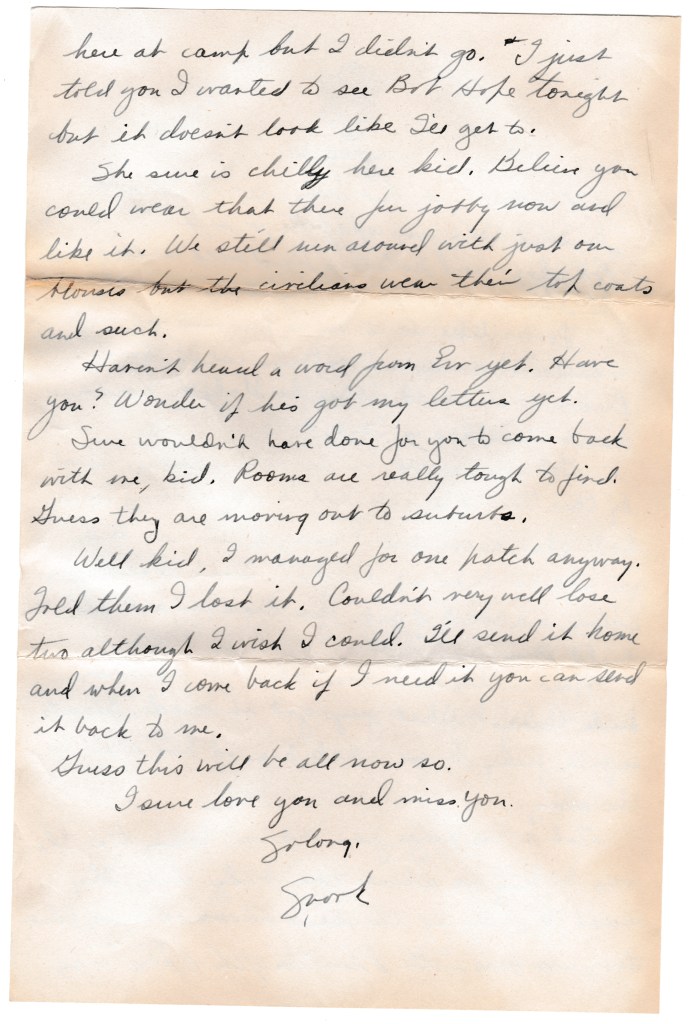 here at camp but I didn't go. I just
told you I wanted to see Bob Hope tonight
but it doesn't look like I'll get to.
She sure is chilly here kid. Believe you
could wear that there fur jobby now and
like it. We still run around with just our
blouses but the civilians wear their top coats
and such.
Haven't heard a word from Erv yet. Have
you? Wonder if he's got my letters yet.
Sure wouldn't have done for you to come back
with me, kid. Rooms are really tough to find.
Guess they are moving out to suburbs.
Well kid, I managed for one patch anyway.
Told them I lost it. Couldn't very well lose
two although I wish I could. I'll send it home
and when I come back if I need it you can send
it back to me.
Guess this will be all now so.
I sure love you and miss you.
So long.